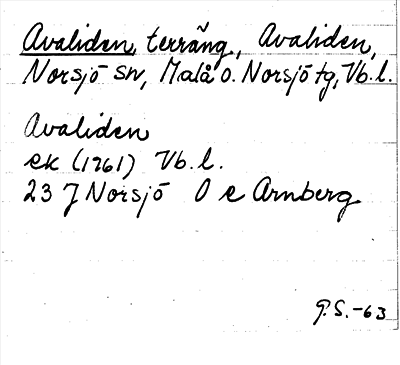 Avaliden, terräng., Avaliden,
Norsjö sn, Malå o. Norsjö tg, Vb. l.
Avaliden
ek (1961) Vb. l.
23 J Norsjö O e Arnberg
G.S.-63